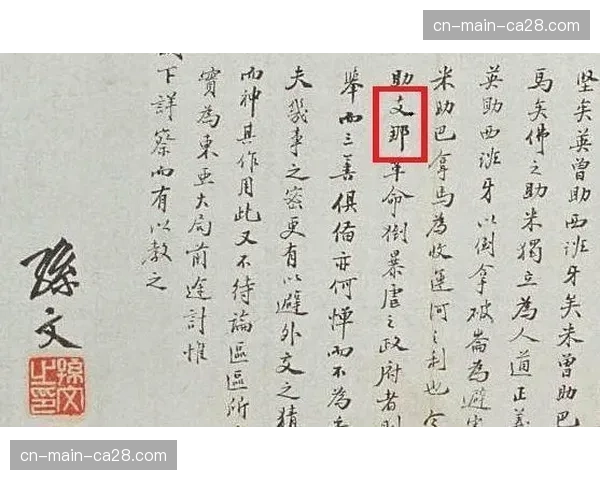 cn-main-ca28.com
坚矣英曾助西班牙矣米曾助巴
馬矣佛之助米獨立為人道正義
英助西班牙以倒拿破崙為避害
米助巴拿馬為收運河之利也今
助支那革命倒暴虐之政府者則
舉而三善俱備亦何憚而不為
夫幾事之密更有以避外交之猜
而神其作用此又不待論區區所
實為東亜大局前途計惟
下詳察而有以教之
孫文
孫文之印
cn-main-ca28.com